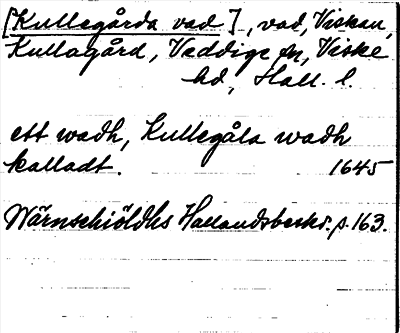 [Kullegårda vad], vad, Viskan,
Kullagård, Veddige sn, Viske
hd, Hall. l.
ett wadh, Kullegåla wadh
kalladt. 1645
Wärnschiöldhs Hallandsbeskr. p. 163.